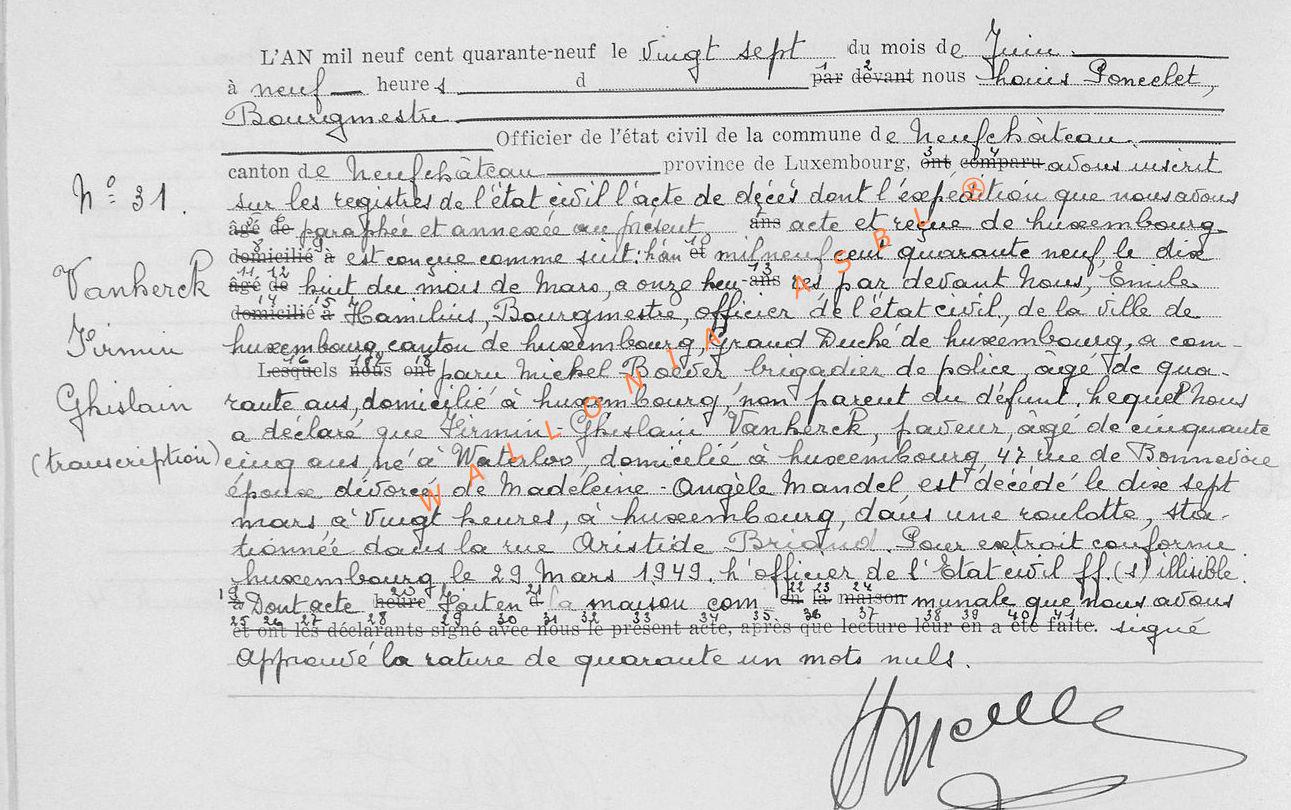 L'AN mil neuf cent quarante-neuf le vingt sept du mois de Juin
à neuf heures d par devant nous Louis Poncelet,
Bourgmestre
Officier de l'état civil de la commune de Neufchâteau
canton de Neufchâteau province de Luxembourg, ont comparu avons inscrit
N° 31. sur les registres de l'état civil l'acte de décès dont l'expédition que nous avons
âgé de paraphée et annexée au présent ans acte et reçue de Luxembourg
domicilié à est conçue comme suit: L'an et mil neuf cent quarante neuf, le dix
Vanherck âgé de huit du mois de Mars, à onze heu- ans res par devant Nous, Emile
domicilié à Hamilius, Bourgmestre, officier de l'état civil, de la ville de
Firmin Luxembourg, canton de Luxembourg, Grand Duché de Luxembourg, a com-
Lesquels nous ont paru Michel Boever brigadier de police, âgé de qua-
Ghislain rante ans, domicilié à Luxembourg, non parent du défunt. Lequel Nous
a déclaré que Firmin-Ghislain Vanherck, paveur, âgé de cinquante
(transcription) cinq ans, né à Waterloo, domicilié à Luxembourg, 47 rue de Bonnevoie
époux divorcé de Madeleine-Angèle Mandel, est décédé le dix sept
mars à vingt heures, à Luxembourg, dans une roulotte, sta-
tionnée dans la rue Aristide Briand. Pour extrait conforme.
Luxembourg, le 29 Mars 1949. L'officier de l'Etat civil ff. (s) illisible.
à Dont acte heure Fait en à la maison com en la maison munale que nous avons
et ont les déclarants signé avec nous le présent acte, après que lecture leur en a été faite. signé
Approuvé la rature de quarante un mots nuls.
WALLONIA ASBL ®